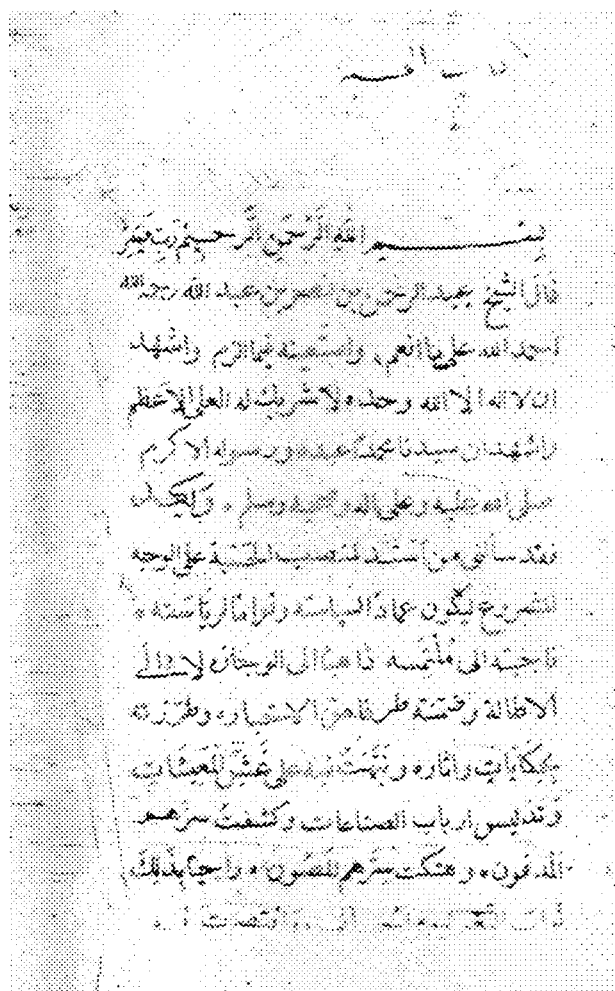 بسم الله الرحمن الرحيم
قال الشيخ عبد الرحمن بن نصر بن عبد الله رحمه الله
احمد الله على ما انعم، واستعينه فيما الزم واشهد
ان لا اله الا الله وحده لا شريك له العلي الاعظم
واشهد ان سيدنا محمدا عبده ورسوله الاكرم
صلى الله عليه وعلى اله وصحبه وسلم، وبعد
فقد سألني من استند لمنصب الحسبة على الوجه
المشروع ليكون عمادا لسياسته وقواما لرياسته،
فاجبته الى ملتمسه ذاهبا الى الوجازه لا الى
الاطالة وضمنته طرفا من الاخبار، وطرزته
بحكايات واثار، ونبهت فيه على غش المبيعات
وتدليس ارباب الصناعات وكشفت سرهم
المدفون، وهتكت سترهم المصون، راجيا بذلك